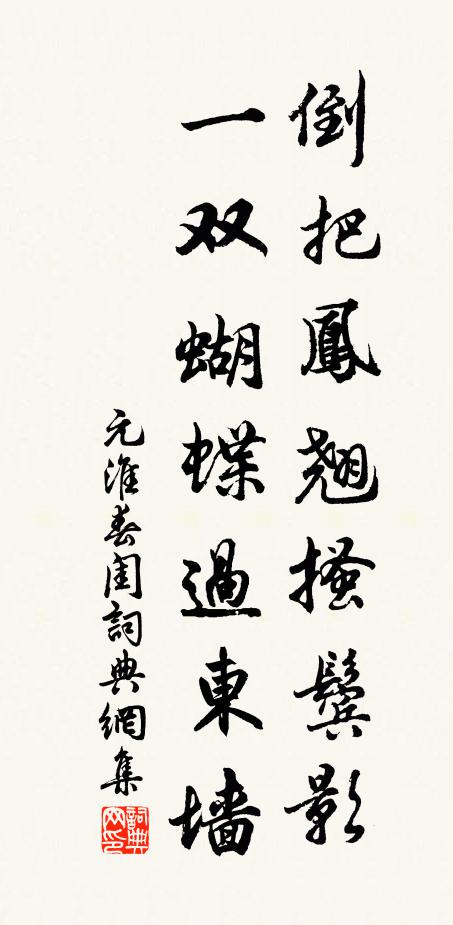 倒把鳳翹搔鬓影
一双蝴蝶過東墙
元淮春閨詞典網集
詞典网印